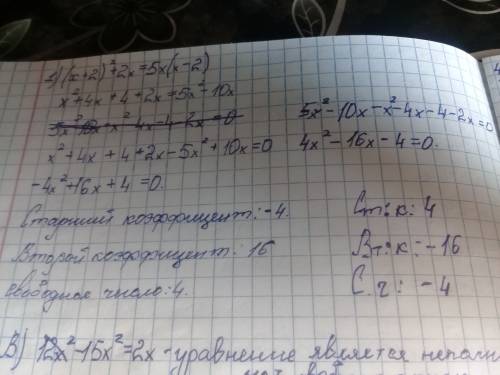 1) (x+2)²+2x=5x(x-2)
x²+4x+4+2x=5x²-10x
x²+4x+4+2x-5x²+10x=0
-4x²+16x+4=0.
Старший коэффициент: -4.
Второй коэффициент: 16
свободное число: 4.
5x²-10x-x²-4x-4-2x=0
4x²-16x-4=0.
Ст.к: 4
Вт.к: -16
С.г: -4
В) 12x²-15x²=2x - уравнение является